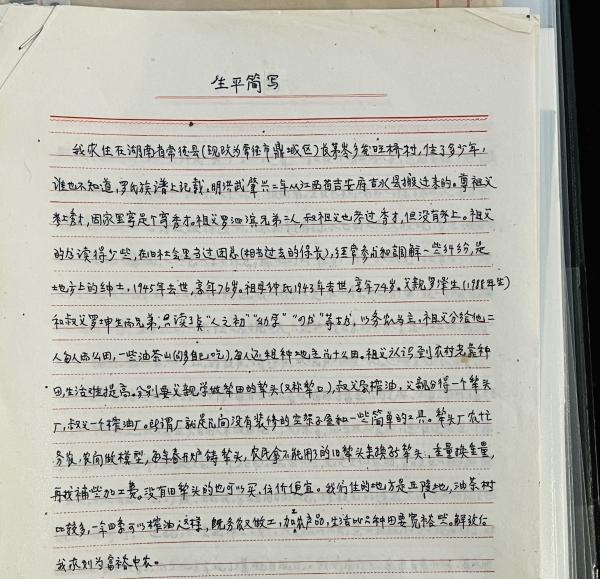 生平简写
我家住在湖南省常德县(现改为常德市鼎城区)长茅岺乡发旺桥村,住了多少年,
谁也不知道,罗氏族谱上记载,明洪武肇兴二年从江西省吉安府吉水县搬过来的。曾祖父
考上秀才,因家里穷是个穷秀才。祖父罗泗滨兄弟二人,叔祖父也考过秀才,但没有考上。祖父
的书读得少些,在旧社会里当过团总(相当过去的保长),经常参加和调解一些纠纷,是
地方上的绅士,1945年去世,享年76岁。祖母钟氏1943年去世,享年74岁。父亲罗泽生(生)
和叔父罗坤生两兄弟,只读了点“人之初”“幼学”“四书”等古书,以务农为主,祖父分给他二
人每人四亩田,一些油茶山(够自己吃),每人还租种地主几十亩田。祖父认识到农村光靠种
田,生活难提高。分别要父亲学做犁田的犁头(又称犁口),叔父会榨油,父亲分得一个犁头
厂,叔父一个榨油厂。所谓厂就是几间没有装修的空架子屋和一些简单的工具。犁头厂农忙
务农,农闲做模型,每年春开炉铸犁头,农民拿不能用了的旧犁头来换新犁头,重量换重量,
再找补些加工费。没有旧犁头的也可以买,但价便宜。我们住的地方是丘陵地,油茶树
比较多,一年四季可以榨油,这样,既务农又做工,加工农产品,生活比只种田要宽裕些。解放后
我家划为富裕中农。